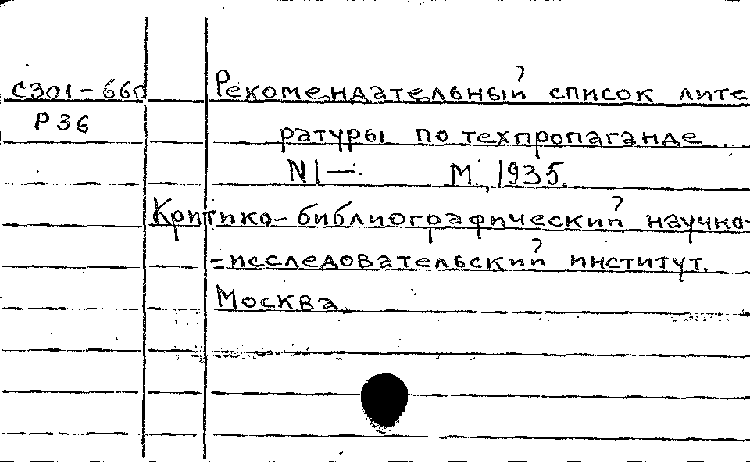 С301-660 Рекомендательный список лите
Р36 ратуры по техпропаганде
N1— М., 1935.
Критико-библиографический научно-
-исследовательский институт.
Москва.